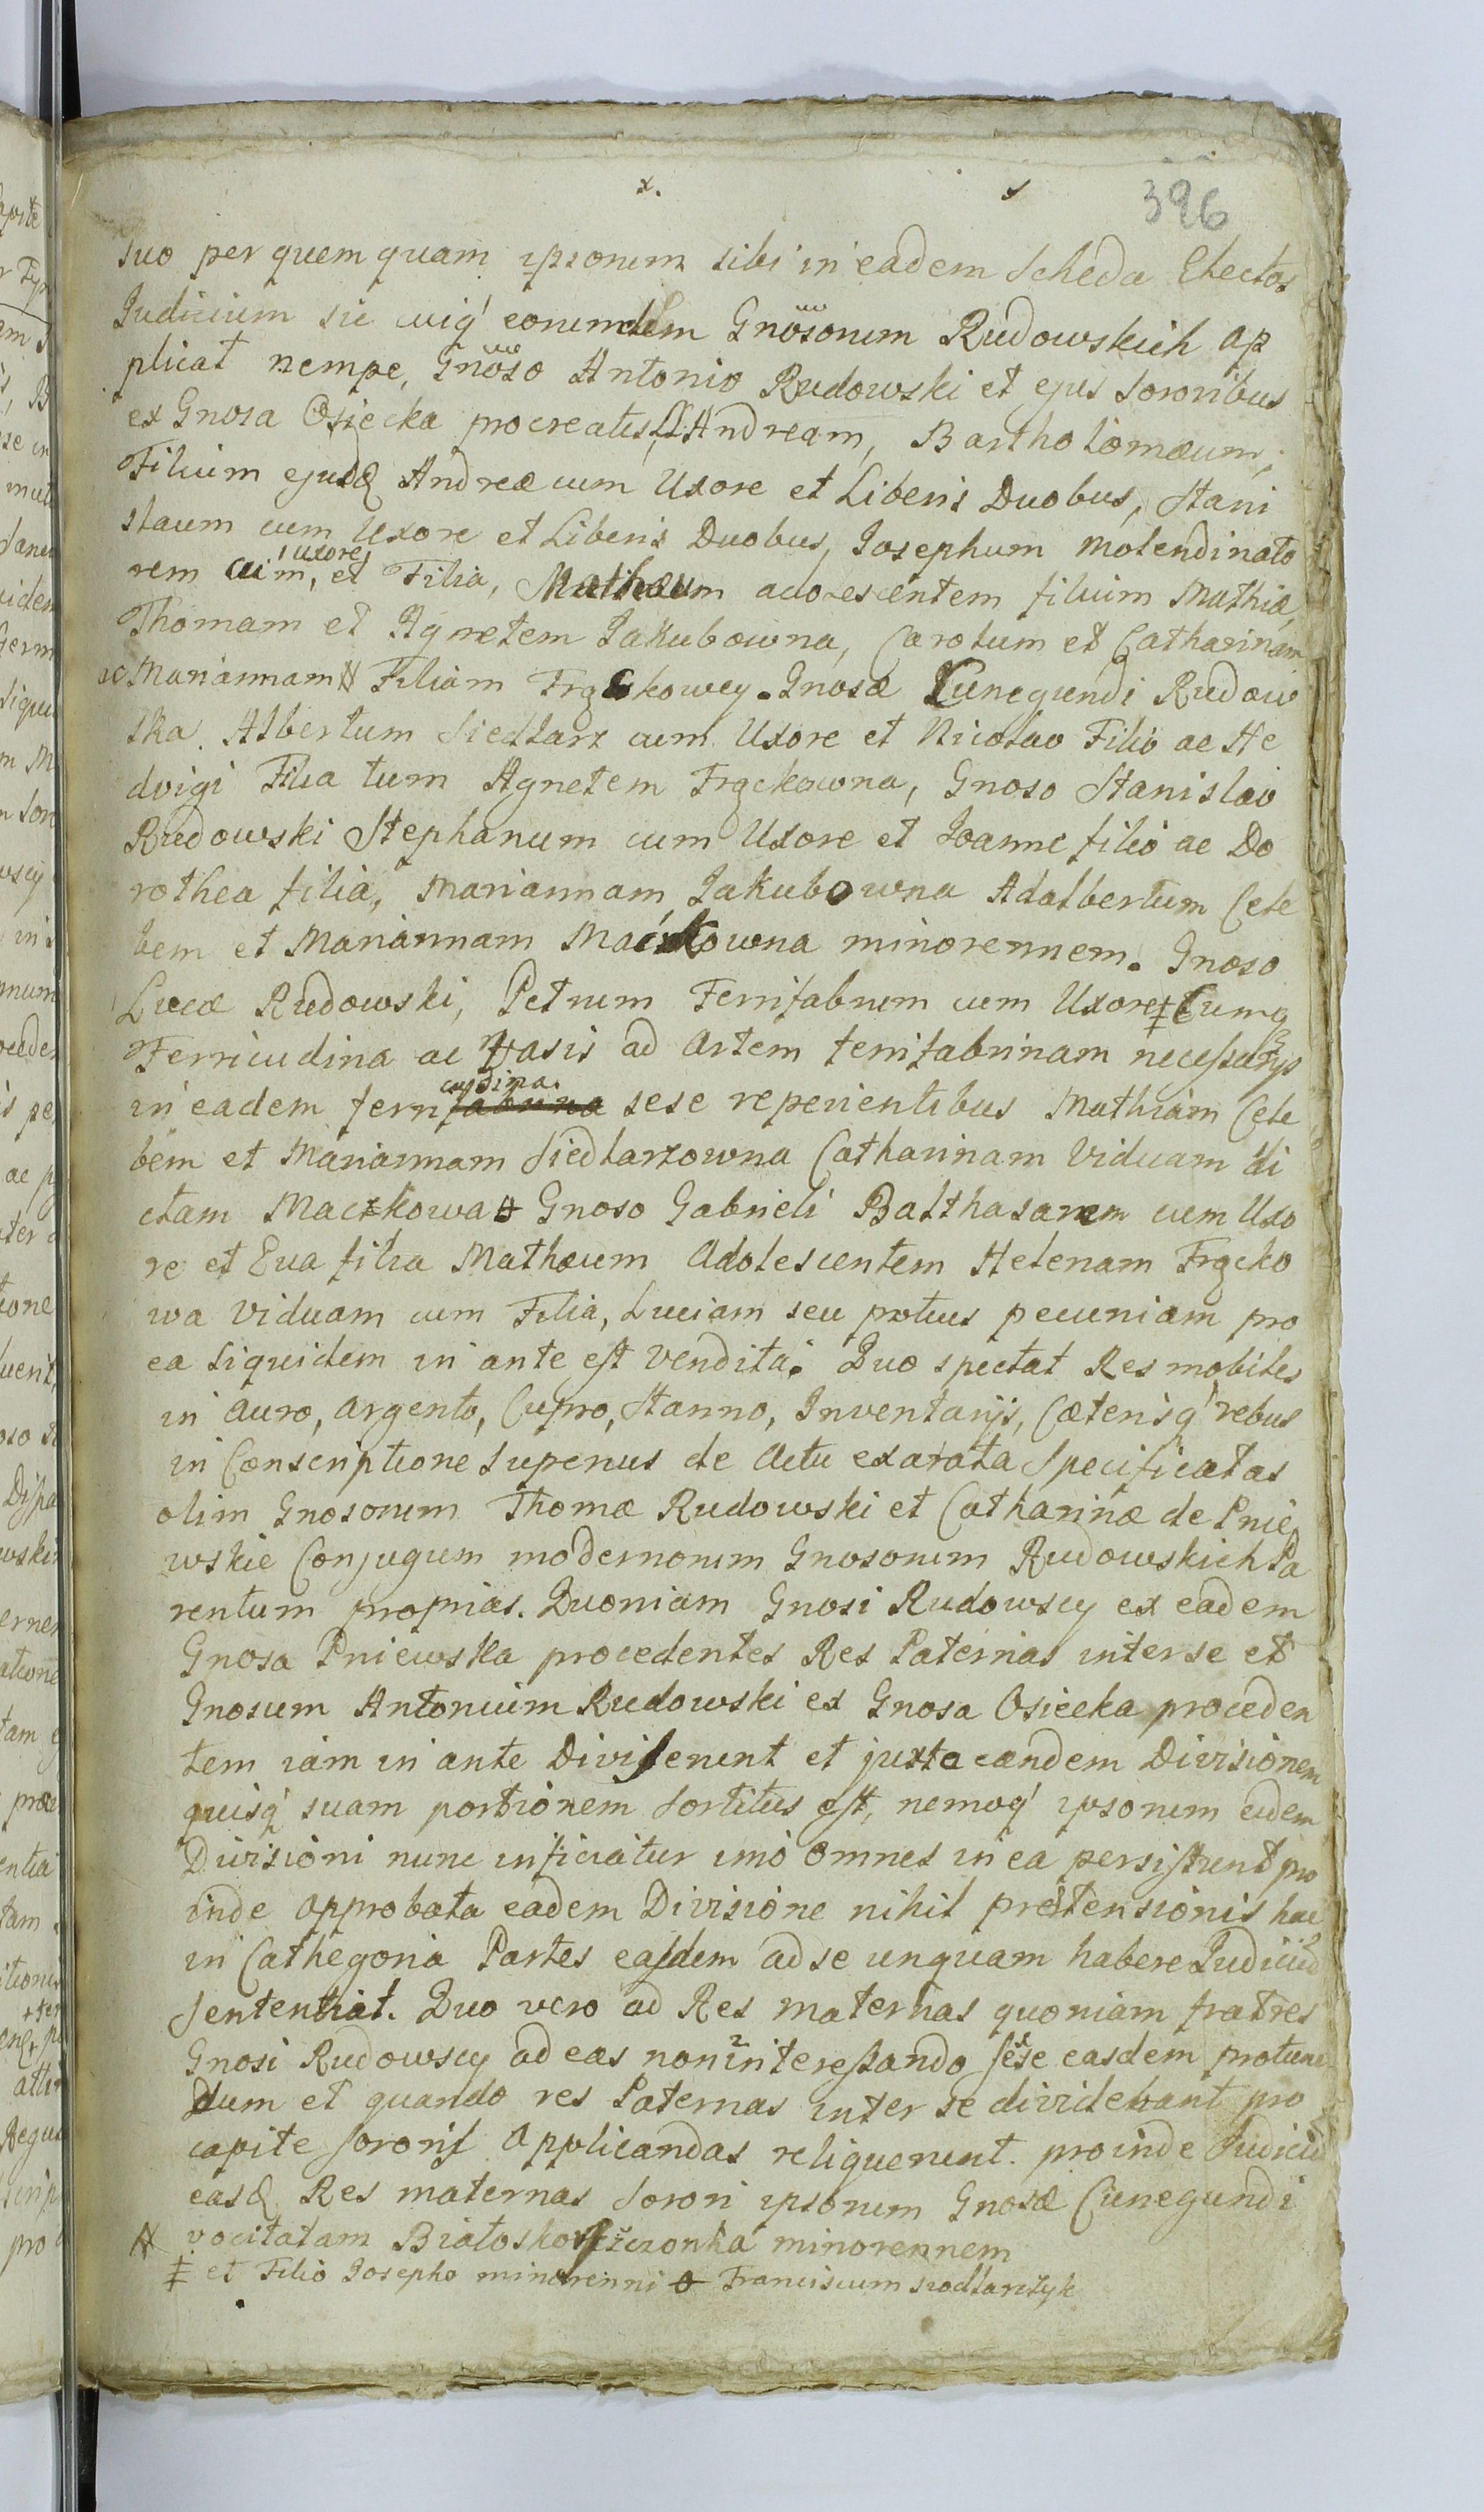 396
suo per quemquam ipsorum sibi in eadem Scheda Electos
Judicium sic cuiq' eorumdem Gnosorum Rudowskich ap
plicat nempe, Gnoso Antonio Rudowski et ejus Sororibus
ex Gnosa Osiecka procreatis, Andream, Bartholomæum,
Filium ejusd Andreæ cum Uxore et Liberis Duobus, Stani
slaum cum Uxore et Liberis Duobus, Josephum Molendinato
rem cum, uxore, et Filia, Mathæum adolescentem filium Mathiæ,
Thomam et Agnetem Jakubowna, Carolum et Catharinam
ac Mariannam # Filiam Frąckowey. Gnosæ Cunegundi Rudow
ska. Albertum Siedlarz cum Uxore et Nicolao Filio ac He
dvigi Filia tum Agnetem Frąckowna, Gnoso Stanislao
Rudowski Stephanum cum Uxore et Joanne filio ac Do
rothea filia, Mariannam Jakubowna Adalbertum Cele
bem et Mariannam Maćkowna minorennem. Gnoso
Lucæ Rudowski, Petrum Ferrifabrum cum Uxore ‡ Cumq
Ferricudina ac Vasis ad Artem ferrifabrinam necessarijs
in eadem ferri fabrina cudina. sese reperientibus Mathiam Cele
bem et Mariannam Siedlarzowna Catharinam Viduam di
ctam Maczkowa ꝋ Gnoso Gabrieli Balthasarem cum Uxo
re et Eva filia Mathæum Adolescentem Helenam Frącko
wa Viduam cum Filia, Luciam seu potius pecuniam pro
ea siquidem in ante est vendita. Quo spectat Res mobiles
in Auro, Argento, Cupro, Stanno, Inventarijs, Cæterisq' rebus
in Conscriptione superius de Actu exarata Specificatas
olim Gnosorum Thomæ Rudowski et Catharinæ de Pnie
wskie Conjugum modernorum Gnosorum Rudowskich Pa
rentum proprias. Quoniam Gnosi Rudowscy ex eadem
Gnosa Pniewska procedentes Res Paternas inter se et
Gnosum Antonium Rudowski ex Gnosa Osiecka proceden
tem iam in ante Diviserunt et juxta eandem Divisionem
quisq' suam portionem sortitus est, nemoq' ipsorum eidem
Divisioni nunc inficiatur imo omnes in ea persistunt pro
inde approbata eadem Divisione nihil prætensionis hac
in Cathegoria Partes easdem ad se unquam habere Judiciu
Sententiat. Quo vero ad Res maternas quoniam fratres
Gnosi Rudowscy ad eas non interessando sese easdem protunc
dum et quando res Paternas inter se dividebant pro
capite sororis Applicandas reliquerunt. proinde Judiciu
easd Res maternas Sorori ipsorum Gnosæ Cunegundi
# vocitatam Białoskorszczonka minorennem
‡ et Filio Josepho minorenni ꝋ Franciscum siodlarczyk